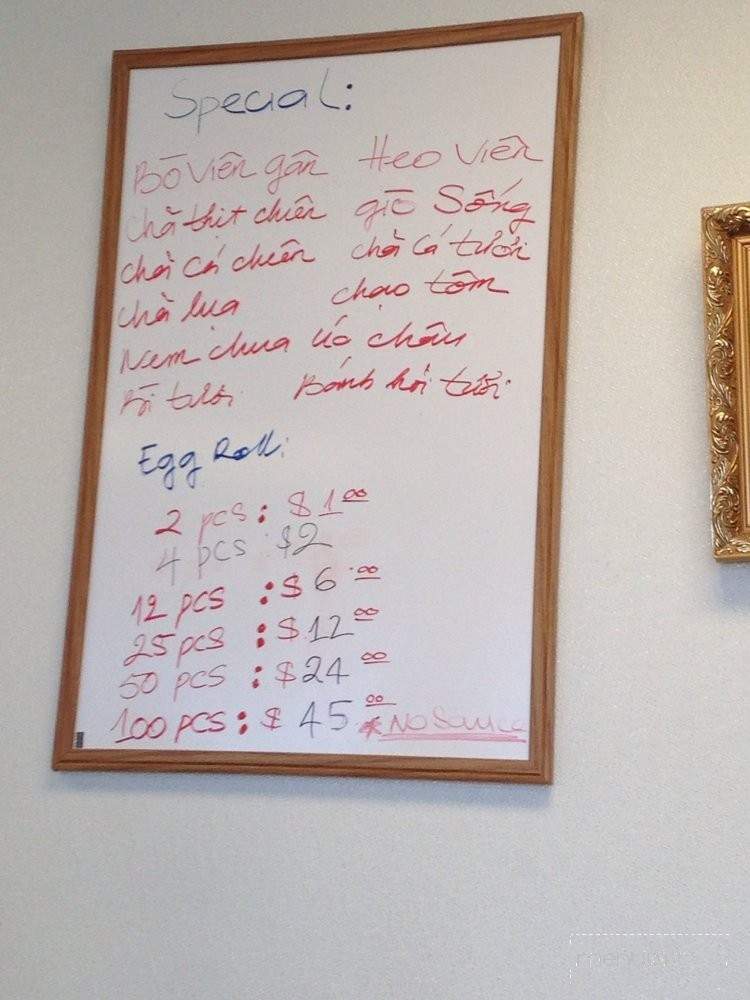 Special:
Bò Viên gân Heo Viên
chả thịt chiên giò Sống
chả cá chiên chả cá tươi
chả lụa chạo tôm
Nem chua úc châu
tươi Bánh hỏi tươi
Egg Roll:
2 pcs: $1.00
4 pcs $2
12 pcs : $6.00
25 pcs : $12.00
50 pcs : $24.00
100 pcs: $45.00 * No Sauce